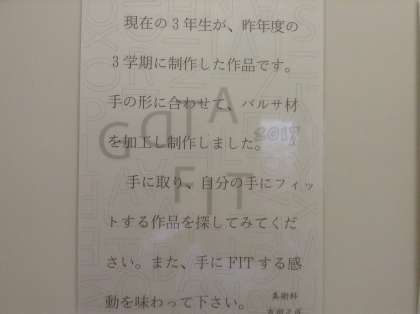 現在の３年生が、昨年度の
３学期に制作した作品です。
手の形に合わせて、バルサ材
を加工し制作しました。
手に取り、自分の手にフィッ
トする作品を探してみてくだ
さい。また、手に FIT する感
動を味わって下さい。
美術科
2017
FIT